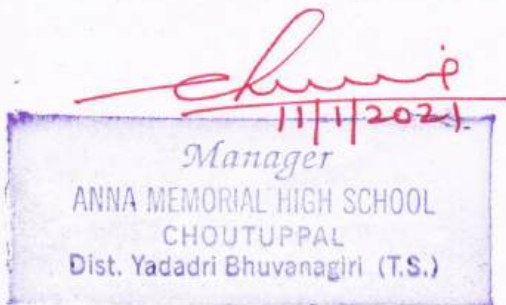 11/1/2021
Manager
ANNA MEMORIAL HIGH SCHOOL
CHOUTUPPAL
Dist. Yadadri Bhuvanagiri (T.S.)